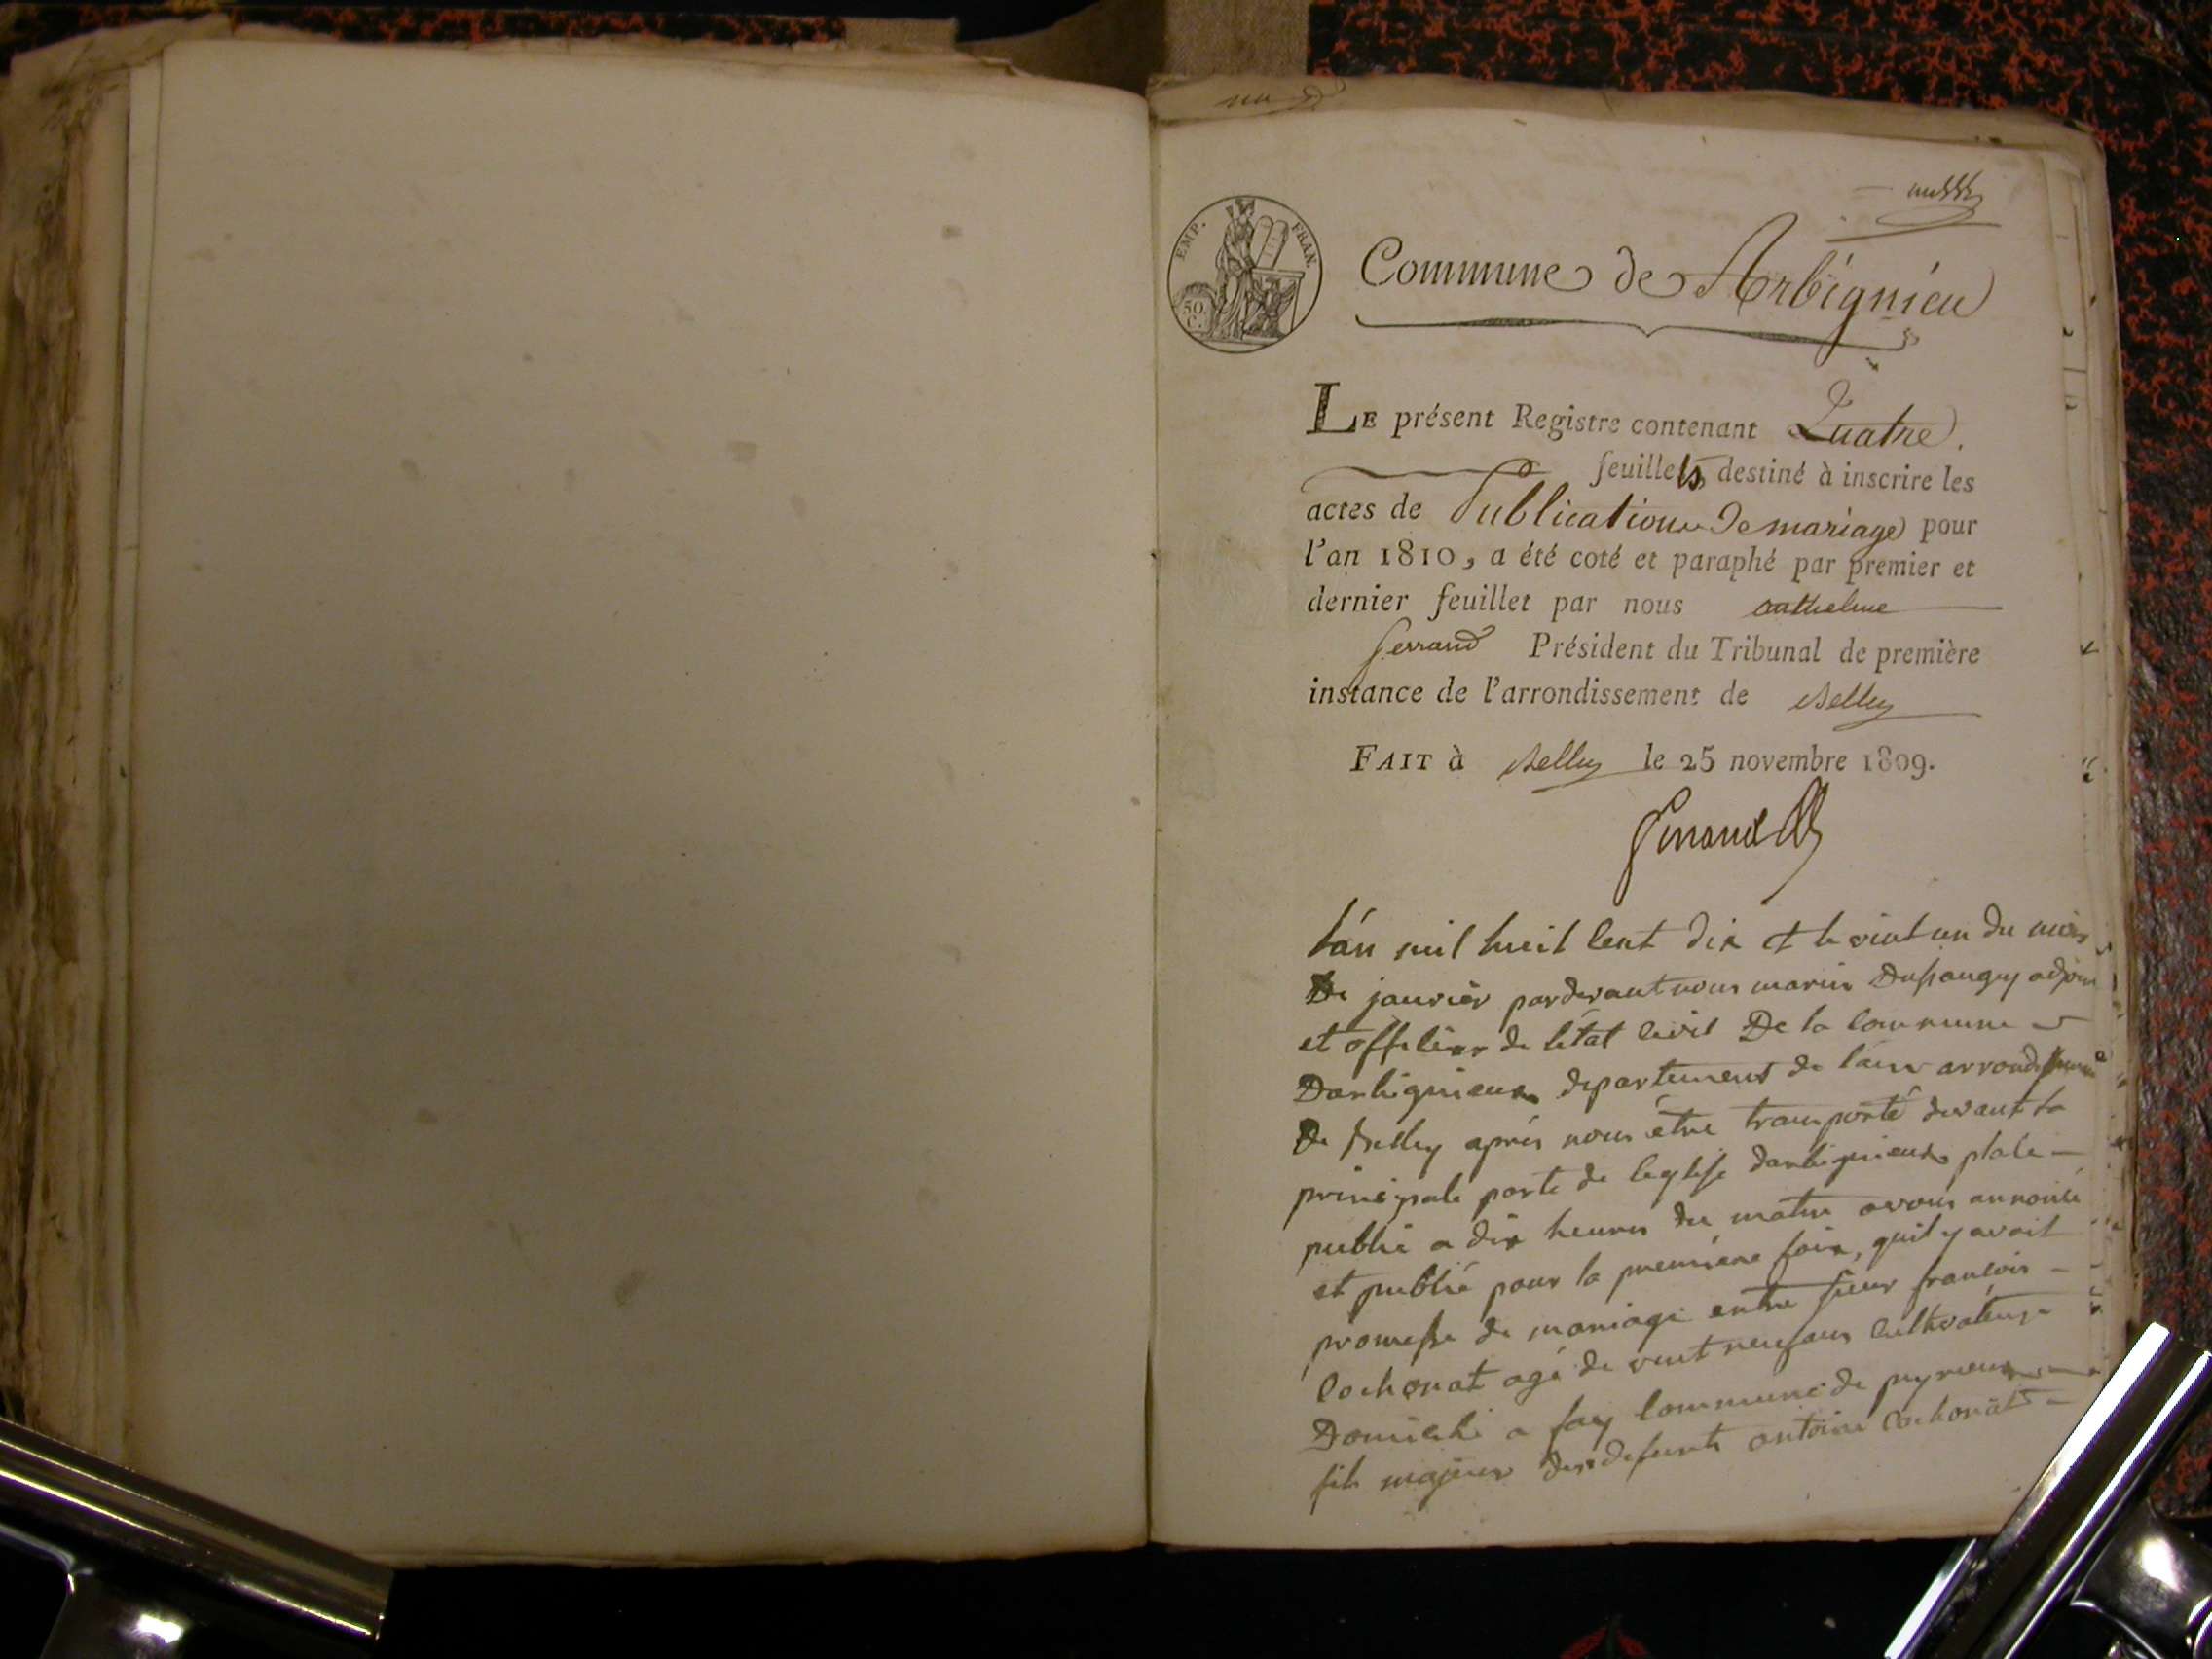 EMP. FRAN.
50
C.
Commune de Arbignieu
LE présent Registre contenant Quatre.
feuillets destiné à inscrire les
actes de Publication De mariage pour
l'an 1810, a été coté et paraphé par premier et
dernier feuillet par nous anthelme
ferrand Président du Tribunal de première
instance de l'arrondissement de Belley
FAIT à Belley le 25 novembre 1809.
ferrand
L'an mil huit Cent dix et le vint un du mois
De janvier pardevant nous marin Dupaugey adjoin
et officier de l'état Civil De la Commune
Darbignieux departement de lain arrondissement
De Belley aprés nous étre transporté devant la
principale porte de leglise darbignieux place
public a dix heures du matin avons annoncé
et publié pour la premiere foix, quil y avait
promesse de mariage entre sieur francois
Cochonat agé de vint neuf ans Cultivateur
Domicilié a fay Commune de peyrieux
fils majeur des defunts antoine Cochonat